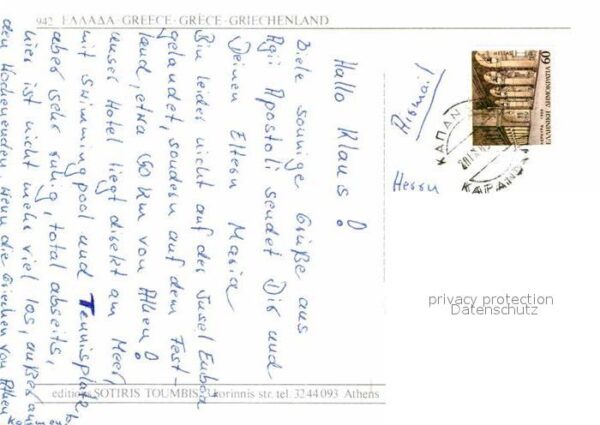 942 ΕΛΛΑΔΑ · GREECE · GRÈCE · GRIECHENLAND
Hallo Klaus!
Viele sonnige Grüße aus
Agii Apostoli sendet Dir und
Deinen Eltern Maria
Bin leider nicht auf der Insel Euböa
gelandet, sondern auf dem Fest-
land, etwa 50 km von Athen!
unser Hotel liegt direkt am Meer,
mit Swimmingpool und Tennisplatz
aber sehr ruhig, total abseits,
hier ist nicht mehr viel los, außer an
den Wochenenden, wenn die Griechen von Athen
Airmail
Herrn
60
ΕΛΛΗΝΙΚΗ ΔΗΜΟΚΡΑΤΙΑ
ΚΑΠΑΝ
KAPANDR
privacy protection
Datenschutz
editions SOTIRIS TOUMBIS, 3 korinnis str. tel. 3244093 Athens